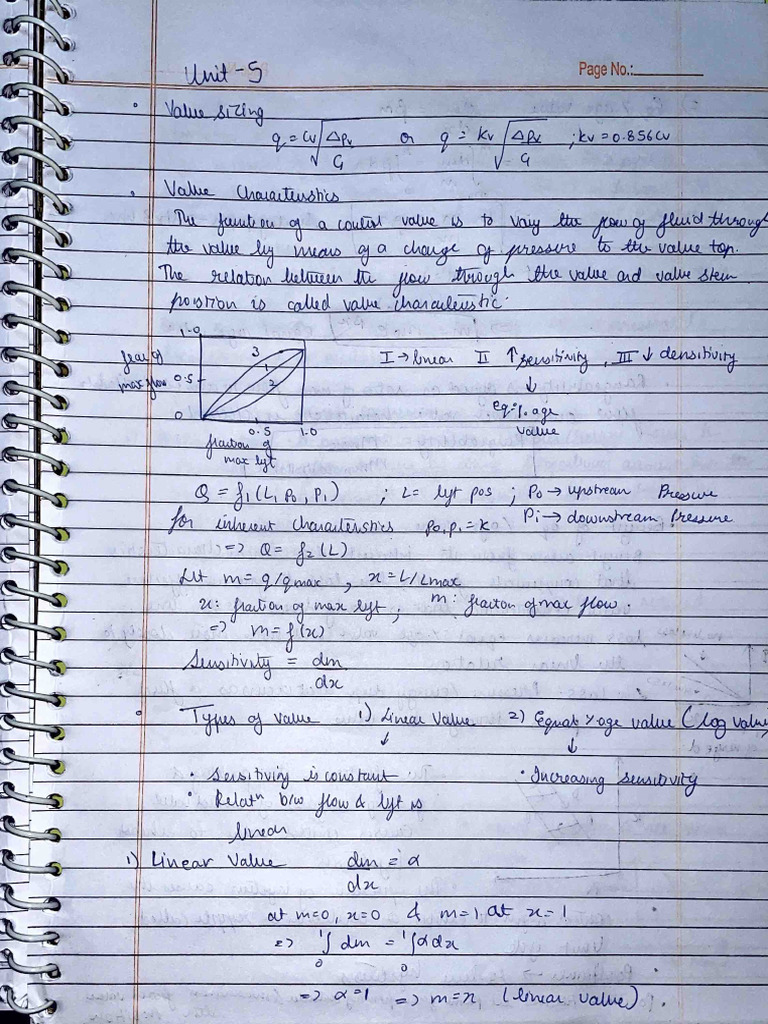 Unit - 5
Page No.:
• Valve sizing
q = Cv √(ΔPv/G) or q = Kv √(ΔPv/G) ; Kv = 0.856Cv
• Valve Characteristics
The function of a control valve is to vary the flow of fluid through
the valve by means of a change of pressure to the valve top.
The relation between the flow through the valve and valve stem
position is called valve characteristic.
1.0
frac of
max flow 0.5
0
3
1
2
0.5 1.0
fraction of
max lyt
I → linear II ↑ sensitivity, III ↓ densitivity
↓
Eq. % age
valve
Q = f1 (L, P0, P1) ; L = lyt pos ; P0 → upstream Pressure
P1 → downstream Pressure
for inherent characteristics P0, P1 = K
=> Q = f2 (L)
Let m = q/qmax , x = L/Lmax
x: fraction of max lyt , m: fraction of max flow.
=> m = f(x)
Sensitivity = dm/dx
• Types of valve 1) Linear Valve 2) Equal % age valve (Log valve
↓ ↓
• Sensitivity is constant • Increasing sensitivity
• Relatn b/w flow & lyt is
linear
1) Linear Valve dm/dx = α
at m=0, x=0 & m=1 at x=1
=> ∫₀¹ dm = ∫₀¹ α dx
=> α = 1 => m = x (linear valve).